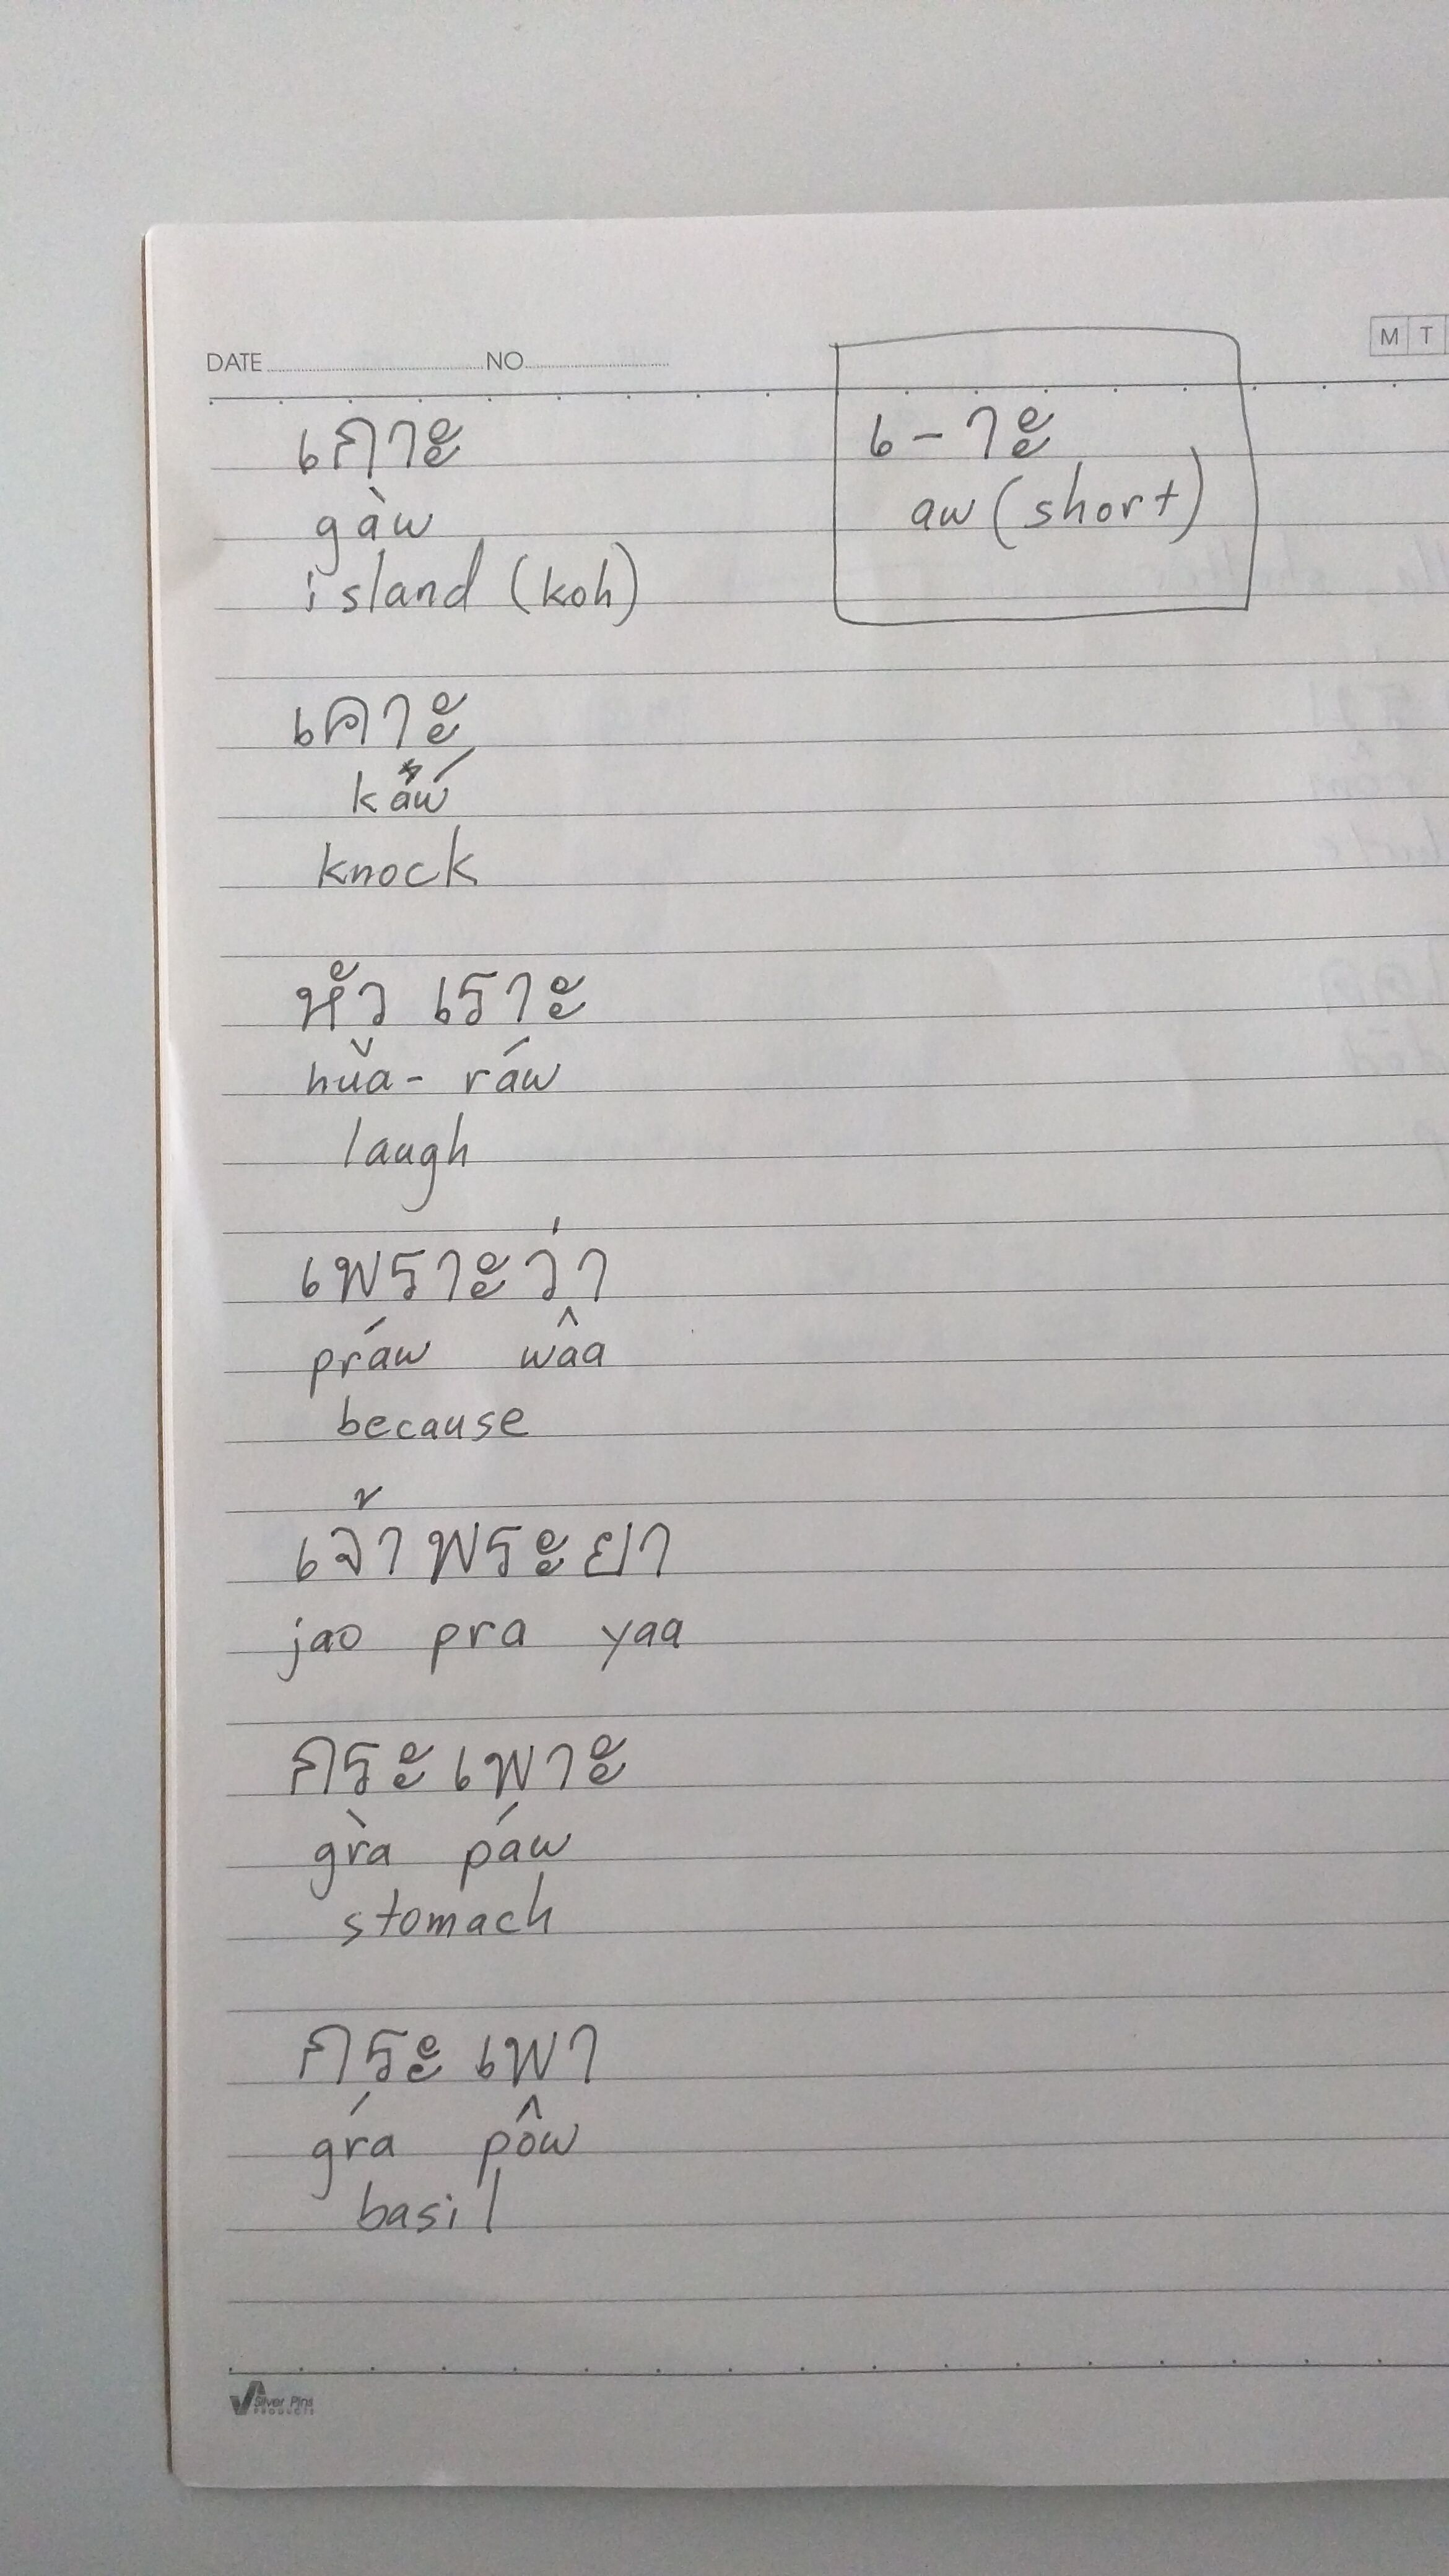 DATE NO
M T
เกาะ
gàw
island (koh)
เ-าะ
aw (short)
เคาะ
káw
knock
หัว เราะ
hǔa- ráw
laugh
เพราะว่า
práw wâa
because
เจ้าพระยา
jao pra yaa
กระเพาะ
grà páw
stomach
กระ เพา
grá pôw
basil
Silver Pins
PRODUCTS